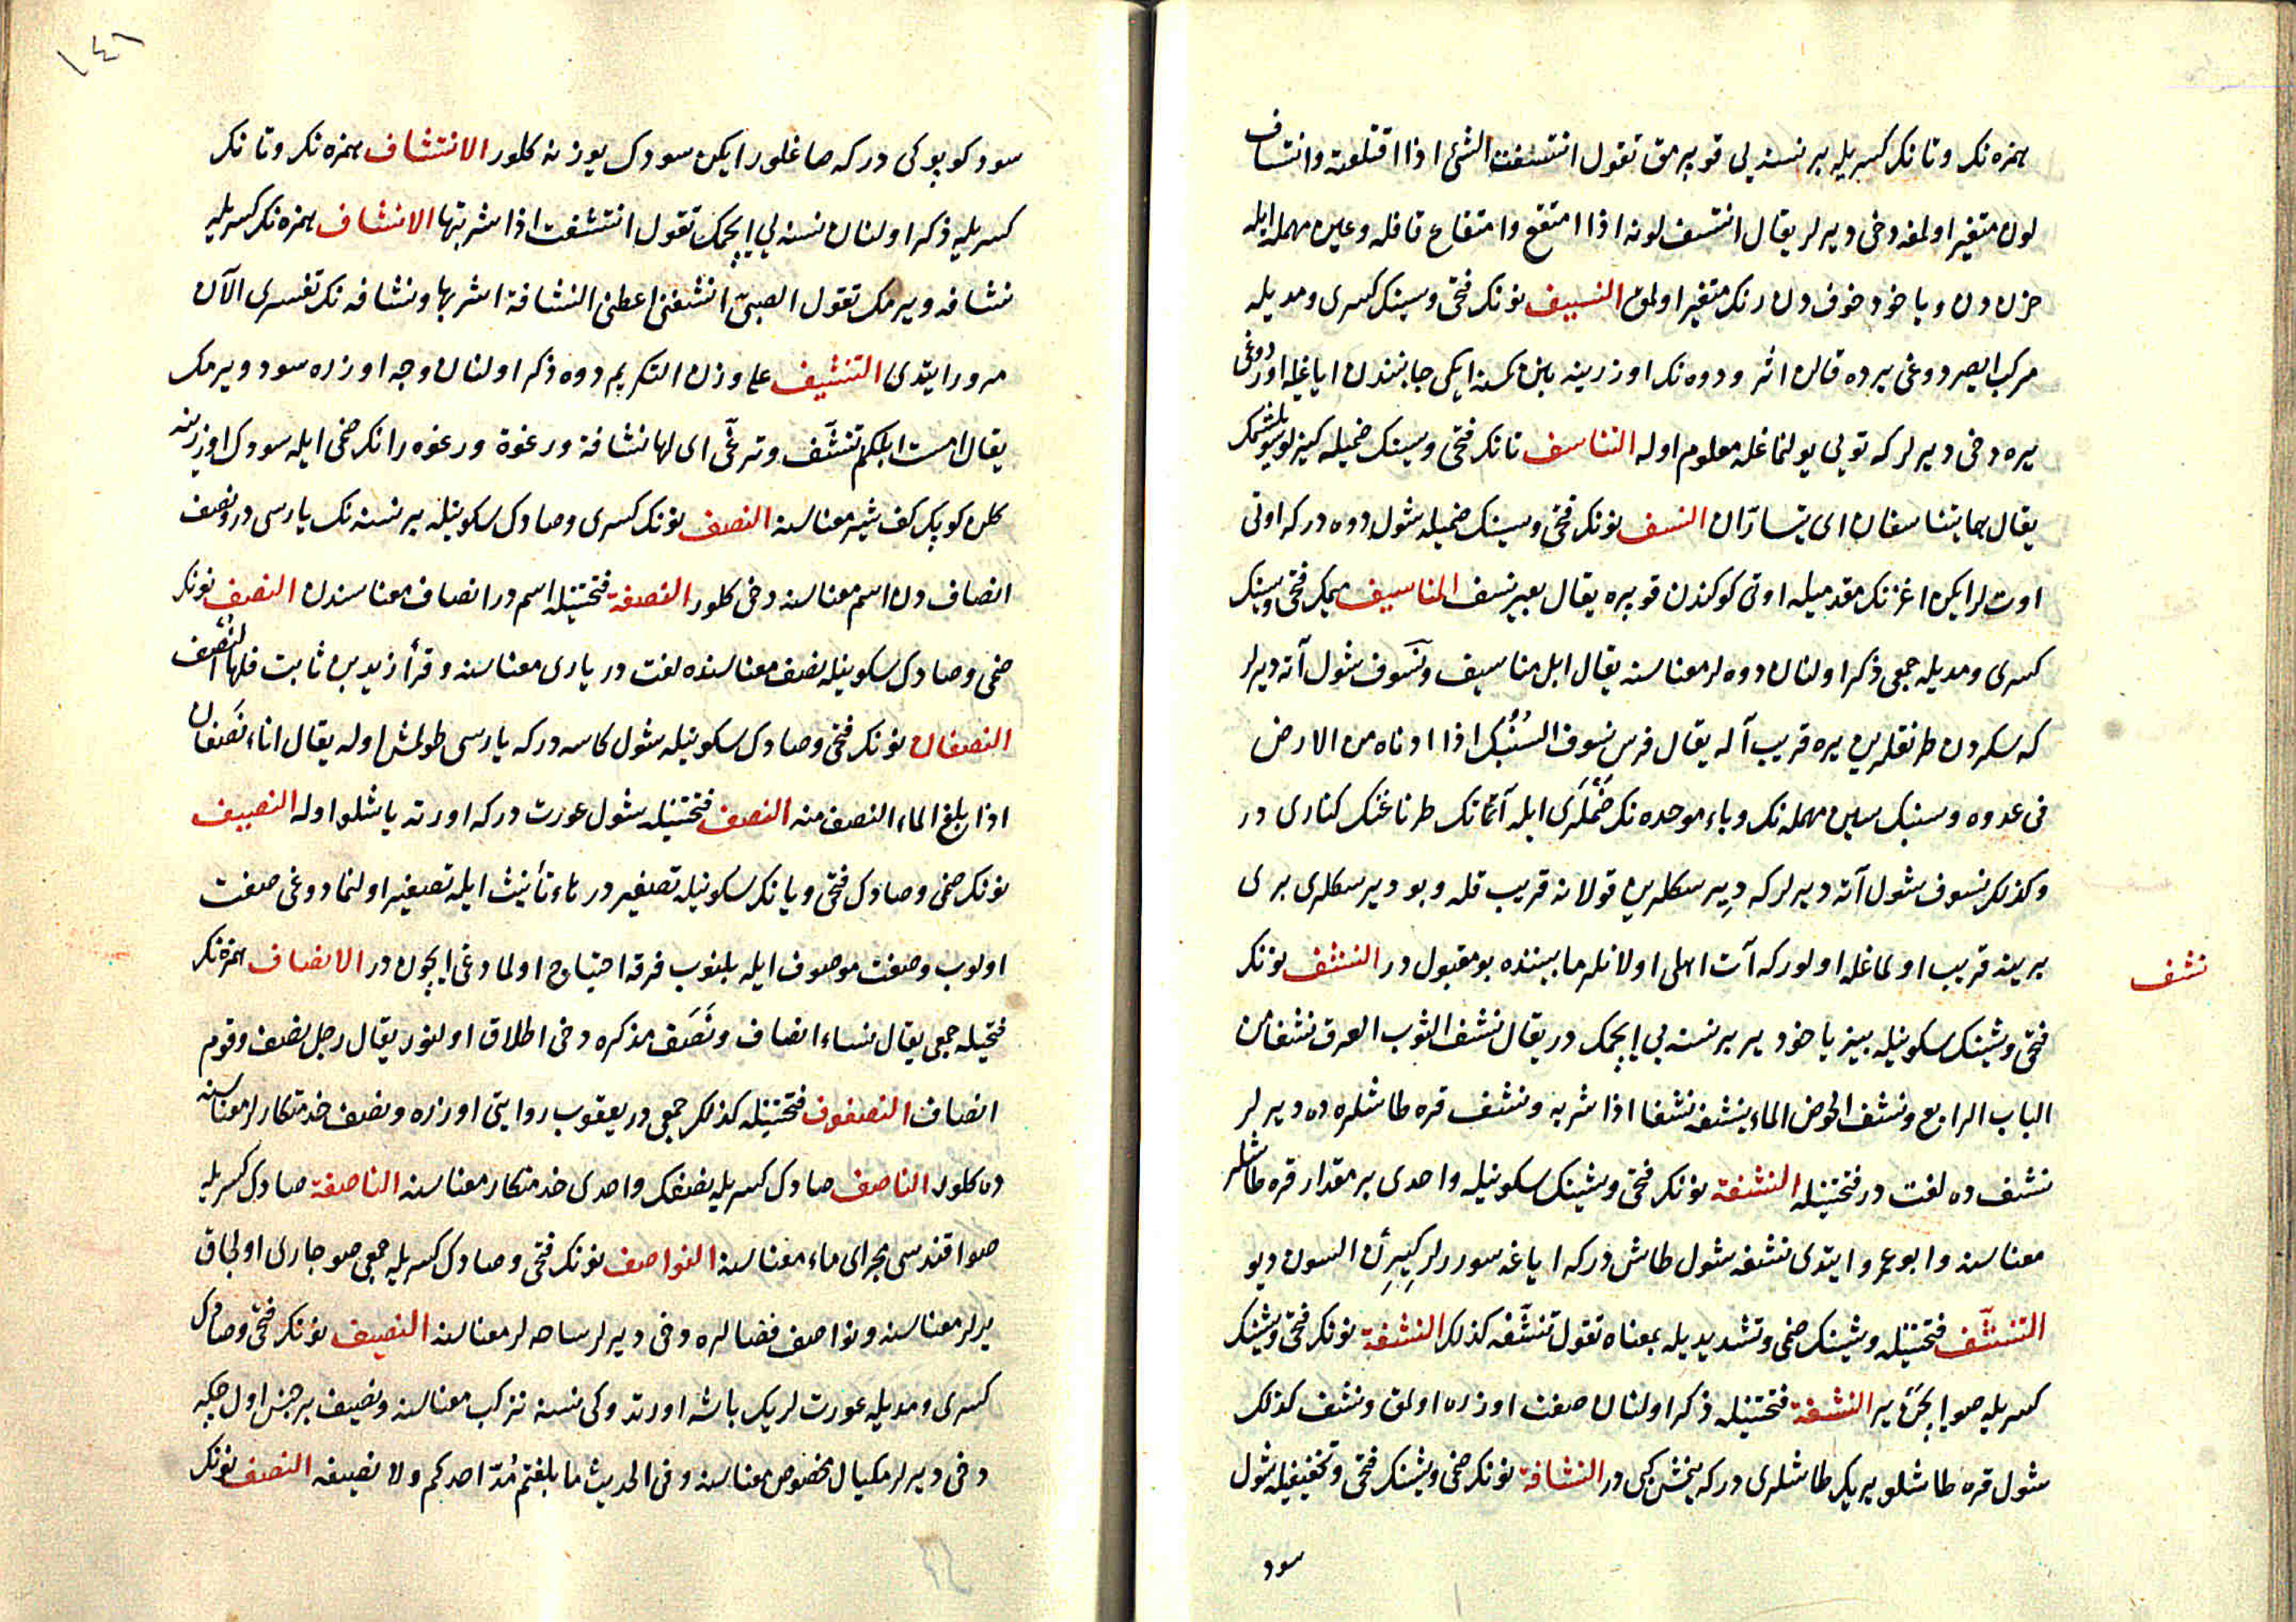 همزه نك وتا نك كسريله بر نسنه يى قوپرمق تقول انتسفت الشئ اذا اقتلعته وانتساف
لون متغير اولمغه دخى ديرلر يقال انتسف لونه اذا امتقع وامتقاع قافله وعين مهمله ايله
حزن دن ويا خود خوف دن رنك متغير اولمق النسيف نونك فتحى وسينك كسرى ومديله
مركب ايصردوغى يرده قالن اثر ودوه نك اوزرينه بنن كمسنه ايكى جانبندن اياغيله اوردوغى
يره دخى ديرلر كه تويى يولنماغله معلوم اوله التناسف تانك فتحى وسينك ضميله كيزلو سويلشمك
يقال هما يتناسفان اى يتسارّان النسف نونك فتحى وسينك ضميله شول دوه دركه اوتى
اوت لرايكن اغزنك مقدميله اوتى كوكندن قوپره يقال بعير نسف المناسيف ميمك فتحى وسينك
كسرى ومديله جمعى ذكر اولنان دوه لر معناسنه يقال ابل مناسيف ونسوف شول آته ديرلر
كه سكردن طرنقلرين يره قريب آله يقال فرس نسوف السنبك اذا ادناه من الارض
فى عدوه وسنبك سين مهمله نك وباء موحده نك ضمه لرى ايله آتك طرناغنك كنارى در
وكذلك نسوف شول آته ديرلر كه ديرسكلرين قولانه قريب قله وبو ديرسكلرى برى
برينه قريب اولماغله اولور كه آت اهلى اولانلر مابيننده بو مقبول در النشف نونك
نشف
فتحى وشينك سكونيله بيز يا خود ير بر نسنه يى ايچمك در يقال نشف الثوب العرق نشفا من
الباب الرابع ونشف الحوض الماء ينشفه نشفا اذا شربه ونشف قره طاشلره ده ديرلر
نشف ده لغت در فتحتينله النشفة نونك فتحى وشينك سكونيله واحدى بر مقدار قره طاشلر
معناسنه وابو عمرو ايتدى نشفه شول طاش دركه اياغه سوررلر كيرن السون ديو
التنشّف فتحتينله وشينك ضمى وتشديديله بمعناه تقول تنشّفه كذلك النشفة نونك فتحى وشينك
كسريله صو ايچن ير النشفة فتحتينله ذكر اولنان صفت اوزره اولمق ونشف كذلك
شول قره طاشلو يرك طاشلرى دركه ينمش كبى در النشافة نونك ضمى وشينك فتحى وتخفيفيله شول
سود
١٤٦
سود كوپوكى دركه صاغلورايكن سودك يوزنه كلور الانتشاف همزه نك وتا نك
كسريله ذكر اولنان نسنه يى ايچمك تقول انتشفت اذا شربتها الانشاف همزه نك كسريله
نشافه ويرمك تقول الصبىّ انشفنى اعطنى النشافة اشربها ونشافه نك تفسيرى الآن
مرور ايتدى التنشيف على وزن التكريم دوه ذكر اولنان وجه اوزره سود ويرمك
يقال امست ابلكم تنشّف وترغّى اى لها نشافة ورغوة ورغوه رانك ضمى ايله سودك اوزرينه
كلن كوپك كف شير معناسنه النصف نونك كسرى وصادك سكونيله بر نسنه نك ياريسى در ونصف
انصاف دن اسم معناسنه دخى كلور النصفة فتحتينله اسم در انصاف معناسندن النصف نونك
ضمى وصادك سكونيله نصف معناسنده لغت در يارى معناسنه وقرأ زيد بن ثابت فلها النُّصف
النصفان نونك فتحى وصادك سكونيله شول كاسه دركه ياريسى طولمش اوله يقال اناء نصفان
اذا بلغ الماء النصف منه النصف فتحتينله شول عورت دركه اورته ياشلو اوله النصيف
نونك ضمى وصادك فتحى ويانك سكونيله تصغير در تاء تأنيث ايله تصغير اولنمادوغى صفت
اولوب وصفت موصوف ايله بلنوب فرقه احتياج اولمادوغى ايچون در الانصاف همزه نك
فتحيله جمعى يقال نساء انصاف ونصف مذكره دخى اطلاق اولنور يقال رجل نصف وقوم
انصاف النصفون فتحتينله كذلك جمعى در يعقوب روايتى اوزره ونصف خدمتكارلر معناسنه
ده كلور الناصف صادك كسريله نصفك واحدى خدمتكار معناسنه الناصفة صادك كسريله
صو اقندسى مجراى ماء معناسنه النواصف نونك فتحى وصادك كسريله جمعى صو جارى اولجاق
يرلر معناسنه ونواصف فضالره دخى ديرلر ساحه لر معناسنه النصيف نونك فتحى وصادك
كسرى ومديله عورت لرك باشه اورتدوكى نسنه تزكب معناسنه ونصيف بر جنس اولچكه
دخى ديرلر مكيال مخصوص معناسنه وفى الحديث ما بلغتم مدّ احدكم ولا نصيفه النصف نونك